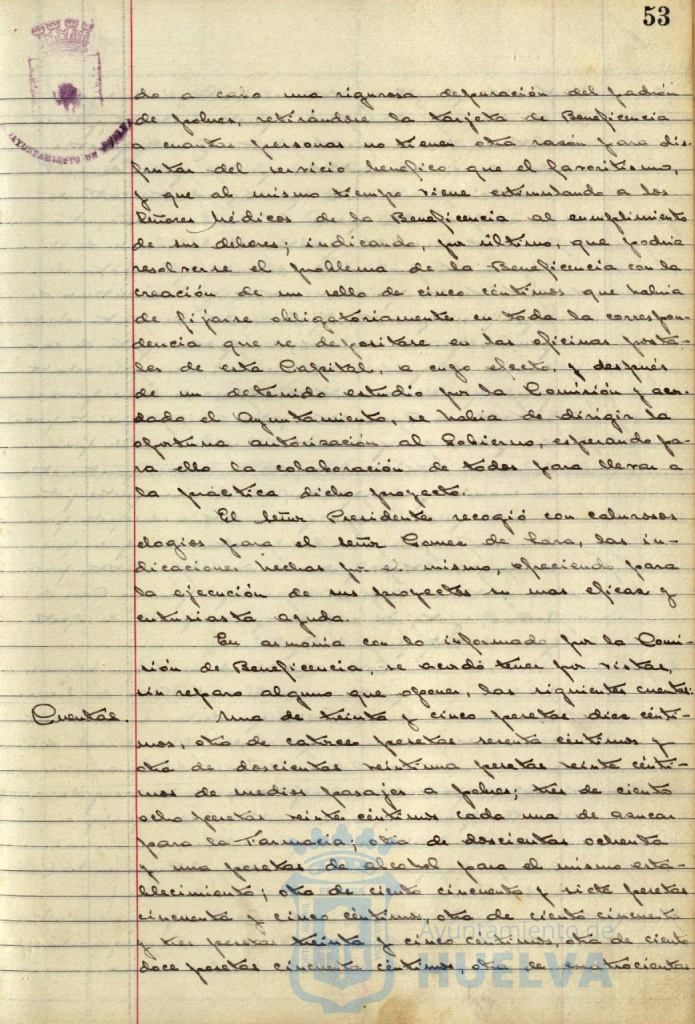 53
AYUNTAMIENTO DE HUELVA
do a cabo una rigurosa depuración del padrón
de pobres, retirándose la tarjeta de Beneficencia
a cuantas personas no tienen otra razón para dis-
frutar del servicio benéfico que el favoritismo,
y que al mismo tiempo viene estimulando a los
Señores Médicos de la Beneficencia al cumplimiento
de sus deberes; indicando, por último, que podría
resolverse el problema de la Beneficencia con la
creación de un sello de cinco céntimos que habría
de fijarse obligatoriamente en toda la correspon-
dencia que se depositase en las oficinas posta-
les de esta Capital, a cuyo efecto, y después
de un detenido estudio por la Comisión y acor-
dado el Ayuntamiento, se había de dirigir la
oportuna autorización al Gobierno, esperando pa-
ra ello la colaboración de todos para llevar a
la práctica dicho proyecto.
El Señor Presidente recogió con calurosos
elogios para el Señor Gomez de Lara, las in-
dicaciones hechas por el mismo, ofreciendo para
la ejecución de sus proyectos su mas eficaz y
entusiasta ayuda.
En armonía con lo informado por la Comi-
sión de Beneficencia, se acordó tener por vistas,
sin reparo alguno que oponer, las siguientes cuentas:
Cuentas.
Una de treinta y cinco pesetas diez cénti-
mos, otra de catorce pesetas sesenta céntimos y
otra de doscientas veintiuna pesetas veinte cénti-
mos de medios pasajes a pobres; tres de ciento
ocho pesetas veinte céntimos cada una de azucar
para la Farmacia; otra de doscientas ochenta
y una pesetas de alcohol para el mismo esta-
blecimiento; otra de ciento cincuenta y siete pesetas
cincuenta y cinco céntimos, otra de ciento cincuenta
y tres pesetas treinta y cinco céntimos, otra de ciento
doce pesetas cincuenta céntimos, otra de cuatrocientas
Ayuntamiento de
HUELVA